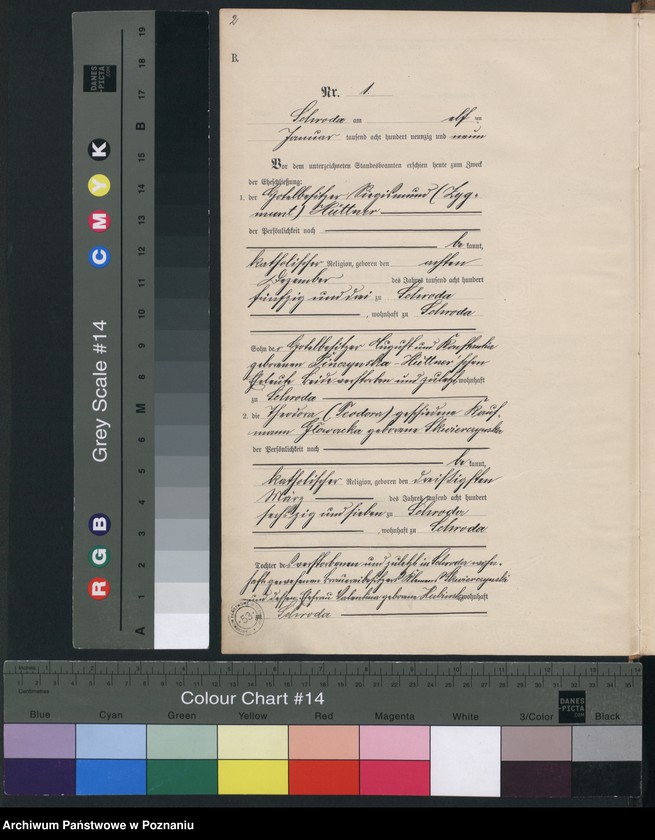 2
B.
Nr. 1.
Schroda am elf ten
Januar tausend acht hundert neunzig und neun
Vor dem unterzeichneten Standesbeamten erschien heute zum Zweck
der Eheschließung:
1. der Hotelbesitzer Siegismund (Zyg-
munt) Hüttner
der Persönlichkeit nach
be kannt,
katholischer Religion, geboren den achten
Dezember des Jahres tausend acht hundert
fünfzig und drei zu Schroda
, wohnhaft zu Schroda
Sohn der Hotelbesitzer August und Konstantia
geborenen Hüttner'schen
Eheleute, beide verstorben und zuletzt wohnhaft
zu Schroda
2. die Theodora (Teodora) geschiedene Kauf-
mann Głowacka geborene Skwierczynska
der Persönlichkeit nach
be kannt,
katholischer Religion, geboren den dreißigsten
März des Jahres tausend acht hundert
sechszig und sieben zu Schroda
, wohnhaft zu Schroda
Tochter des verstorbenen und zuletzt in Schroda wohn-
haft gewesenen Brauereibesitzers Skwierczynski
und dessen Ehefrau Valentina geborene wohnhaft
zu Schroda
53
Grey Scale #14
A 1 2 3 4 5 6 M 8 9 10 11 12 13 14 15 B 17 18 19
R G B
C M Y K
DANES
-PICTA
.COM
Inches
Centimetres
Colour Chart #14
DANES
-PICTA
.COM
Blue Cyan Green Yellow Red Magenta White 3/Color Black
Archiwum Państwowe w Poznaniu